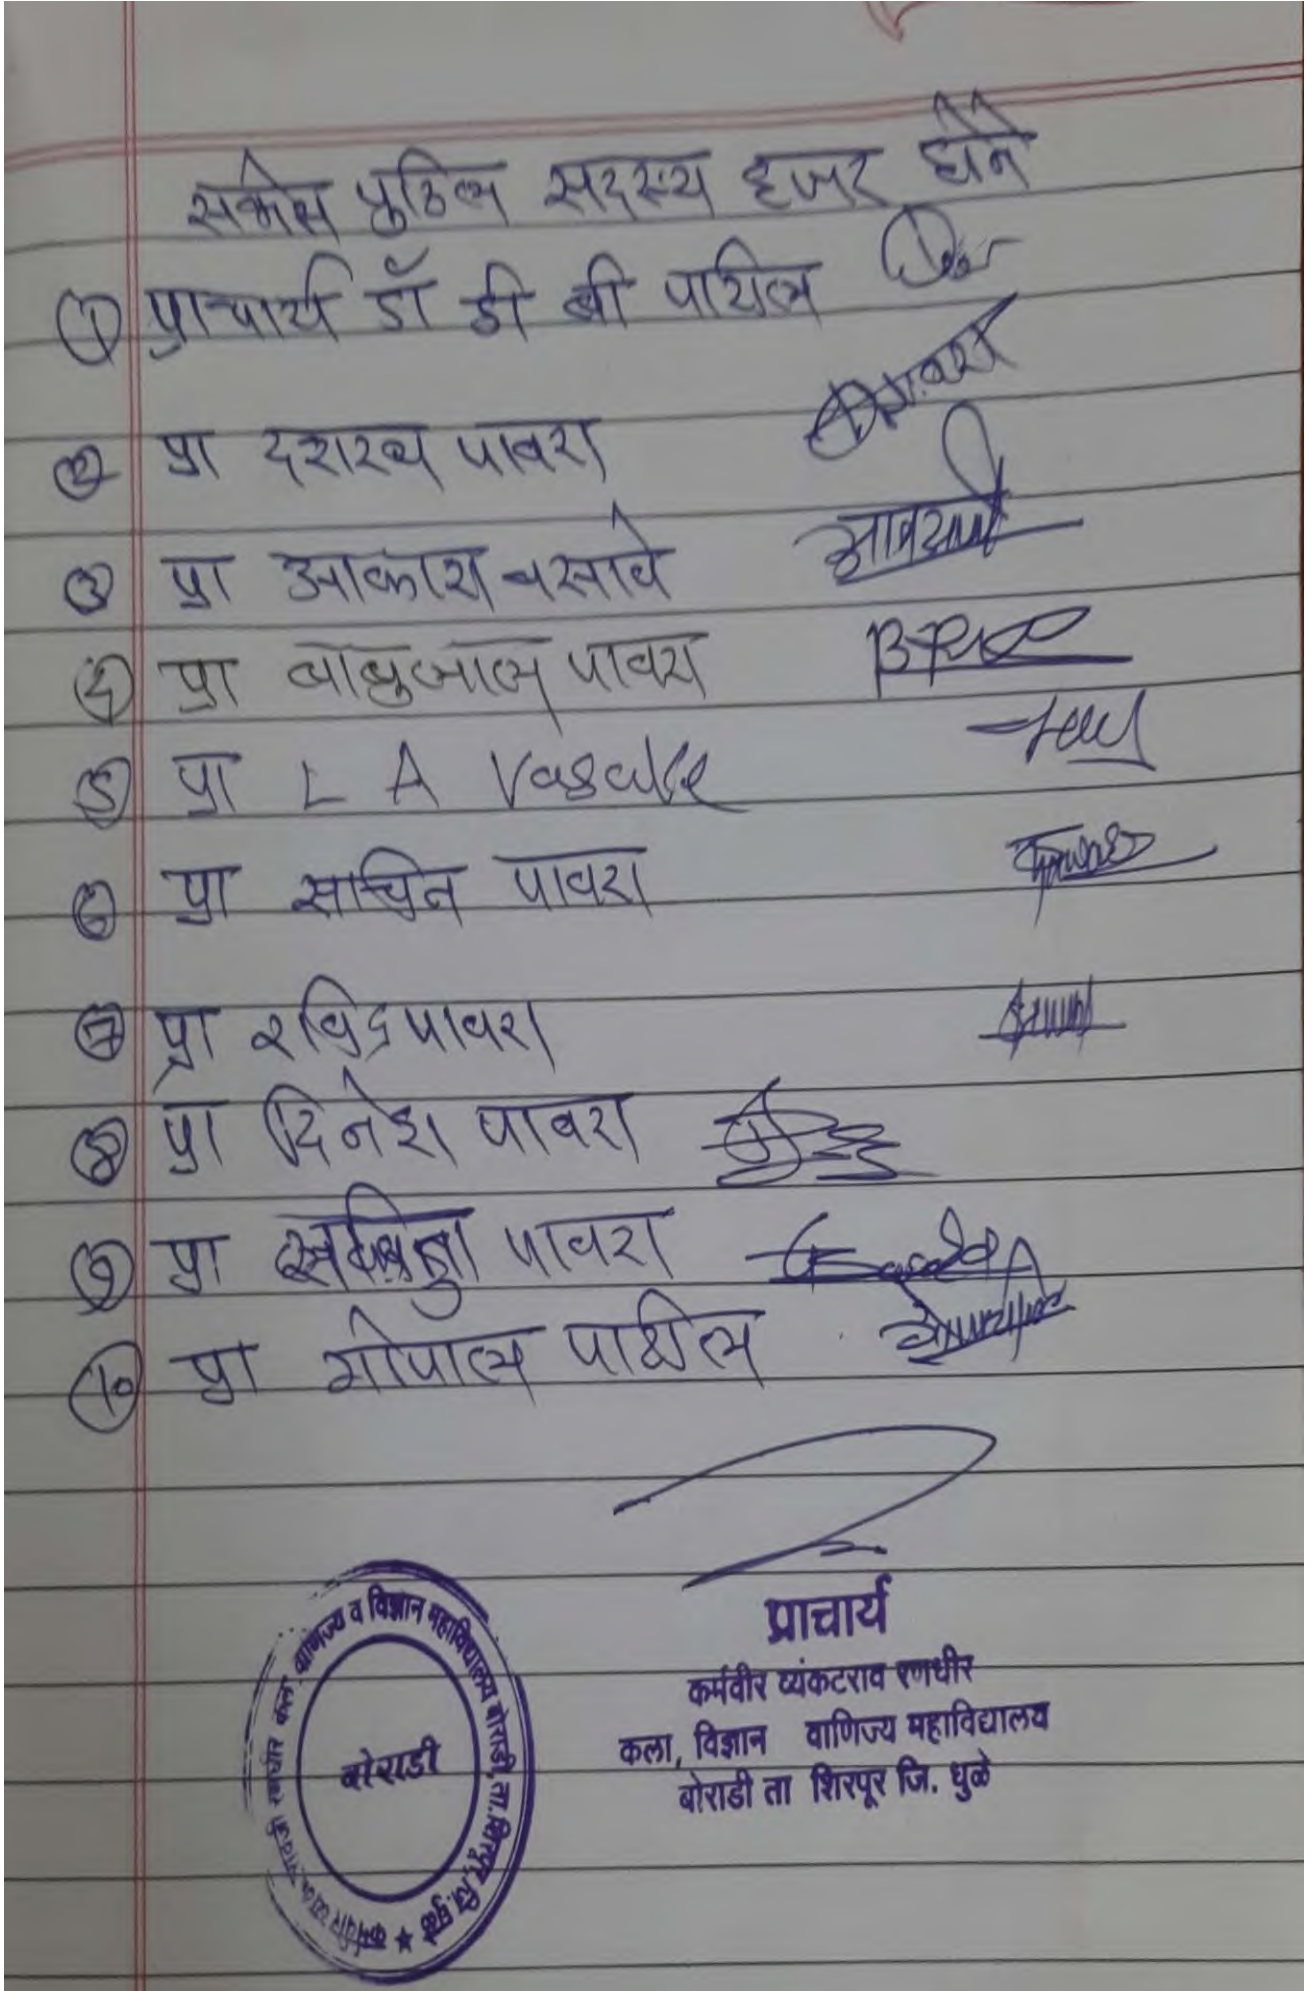 सभेस पुढिल सदस्य हजर होते
① प्राचार्य डॉ डी बी पाटील
② प्रा दशरथ पावरा
③ प्रा आकाश वसावे
④ प्रा बाबुलाल पावरा
⑤ प्रा L A Vasave
⑥ प्रा सचिन पावरा
⑦ प्रा रविंद्र पावरा
⑧ प्रा दिनेश पावरा
⑨ प्रा पावरा
⑩ प्रा गोपाल पाटील
प्राचार्य
कर्मवीर व्यंकटराव रणधीर
कला, विज्ञान वाणिज्य महाविद्यालय
बोराडी ता शिरपूर जि. धुळे
रणधीर कला, वाणिज्य व विज्ञान महाविद्यालय बोराडी, ता. शिरपूर, जि. धुळे ★
बोराडी